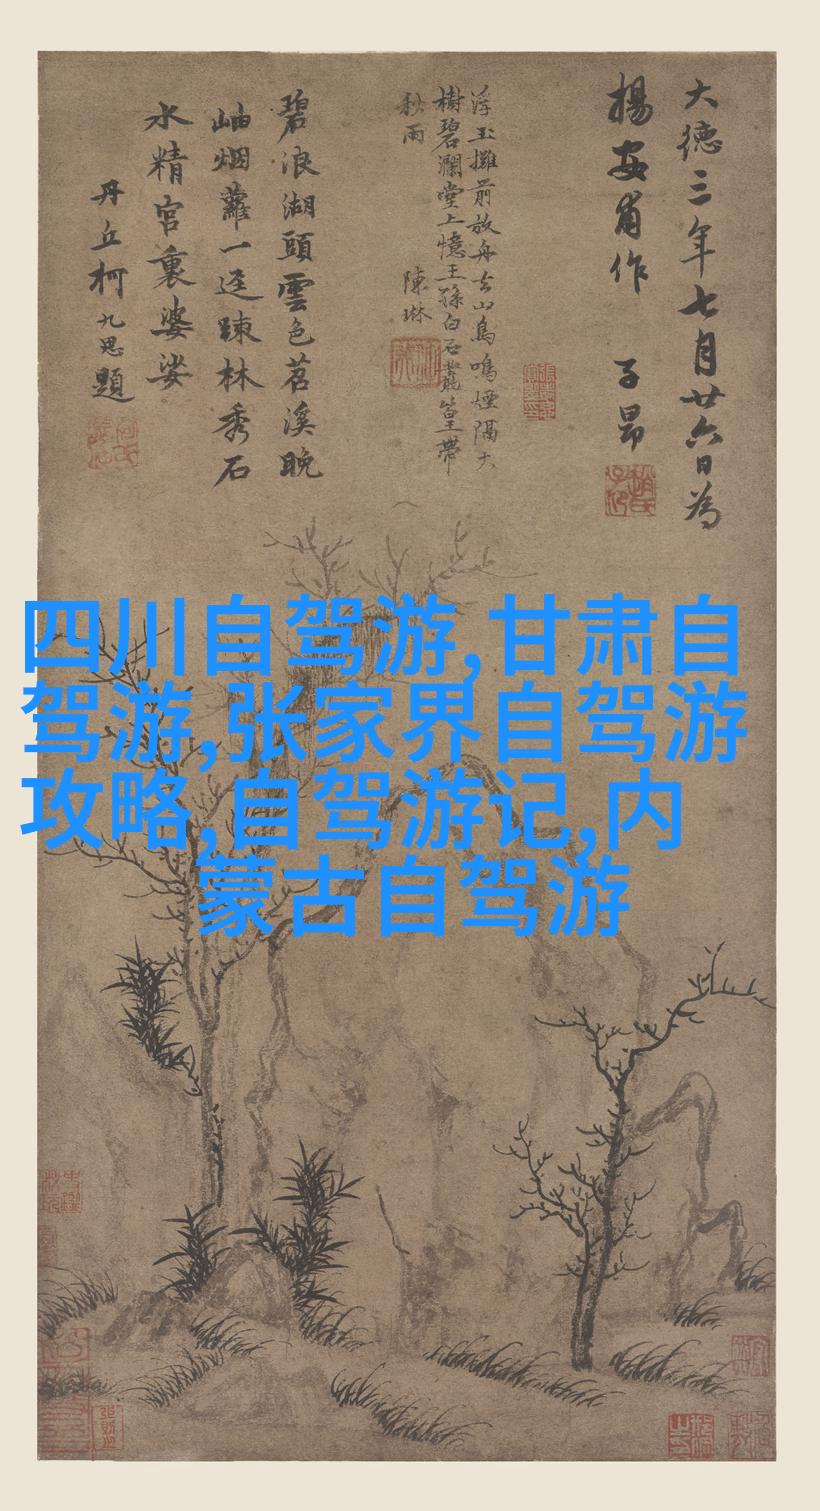 大德三年七月廿六日為
楊安甫作 子昂
浮玉攤前放舟去山鳥鳴煙隔大
樹碧瀾堂上憶王孫白石叢篁帶
秋雨 陳琳
碧浪湖頭雲色茗溪晚
岫烟蘿一逕踈林秀石
水精宮裏婆娑
丹丘柯九思題
四川自驾游,甘肃自
驾游,张家界自驾游
攻略,自驾游记,内
蒙古自驾游